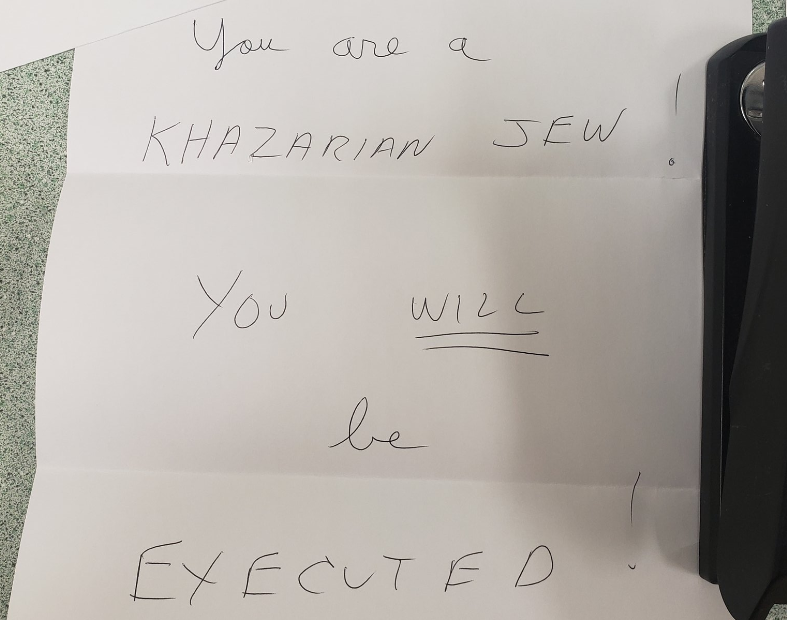 You are a
KHAZARIAN JEW!
YOU WILL
be
EXECUTED!